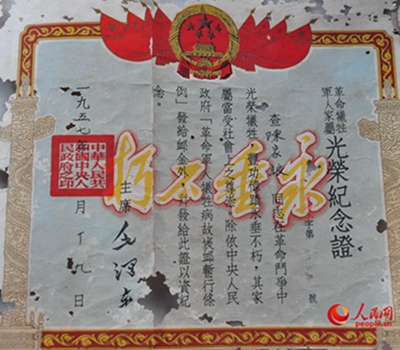 革命犧牲
軍人家屬
光榮紀念證
字第
號
查陳
同志在革命鬥爭中
光榮犧牲，豐功偉績永垂不朽，其家
屬當受社會上之尊敬。除依中央人民
政府「革命軍人犧牲病故褒卹暫行條
例」發給卹金外，並發給此證以資紀
念。
主席
毛澤東
一九五七年
月十九日
中華人民共
和國中央人
民政府之印
永垂不朽
人民网
people.cn